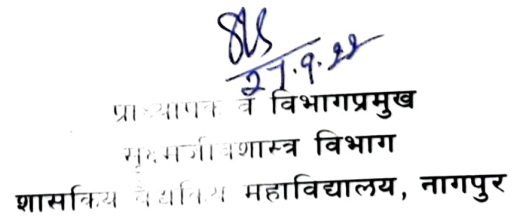 27.9.22
प्राध्यापक व विभागप्रमुख
सुक्ष्मजीवशास्त्र विभाग
शासकिय वैद्यकिय महाविद्यालय, नागपुर